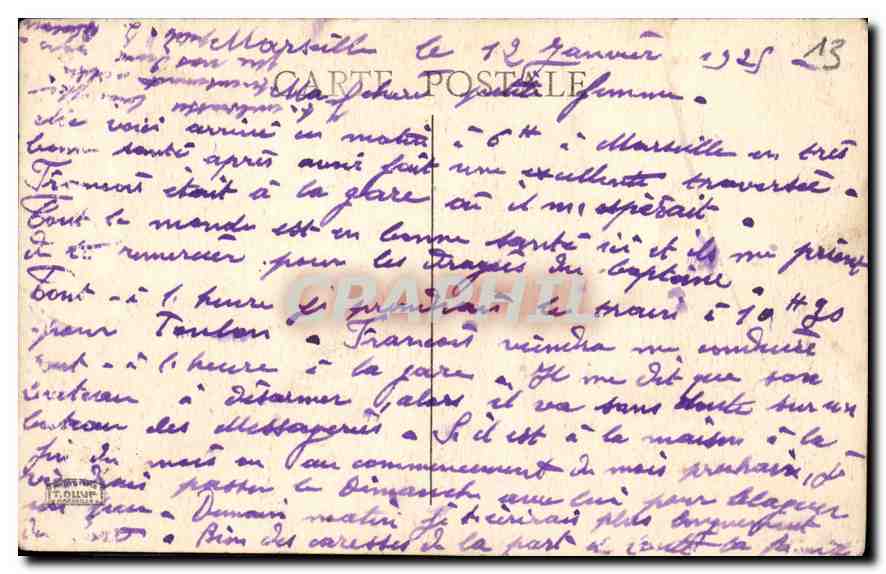 Marseille le 12 Janvier 1925
13
CARTE POSTALE
Ma chère petite femme.
Me voici arrivé ce matin à 6H à Marseille en très
bonne santé après avoir fait une excellente traversée.
François était à la gare où il m'espérait.
Tout le monde est en bonne santé ici et ils me prient
de remercier pour les dragées du baptême.
CPARAPHIL
Tout-à-l'heure je prendrais le train à 10H30
pour Toulon. François viendra me conduire
tout-à-l'heure à la gare. Il me dit que son
bateau à désarmer, alors il va sans doute sur un
bateau des Messageries. Si il est à la maison à la
fin du mois ou au commencement du mois prochain, je
passer le Dimanche avec lui pour blaguer
un peu. Demain matin je t'écrirais plus longuement
Bien des caresses de la part de toute la